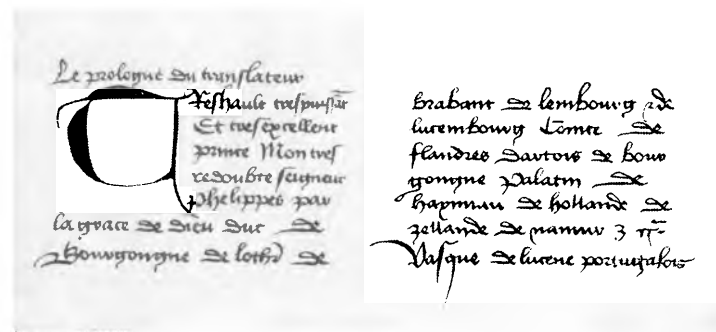 Le prologue du translateur
Treshault trespuissãt
Et tresexcellent
prince Mon tres
redoubte seigneur
Phelippes par
la grace de dieu duc de
Bourgongne de lothr̃ de
brabant de lembourg et de
lucembourg Comte de
flandres dartois de bour
gongne Palatin de
haynnau de hollande de
zellande de namur
Vasque de lucene portugalois